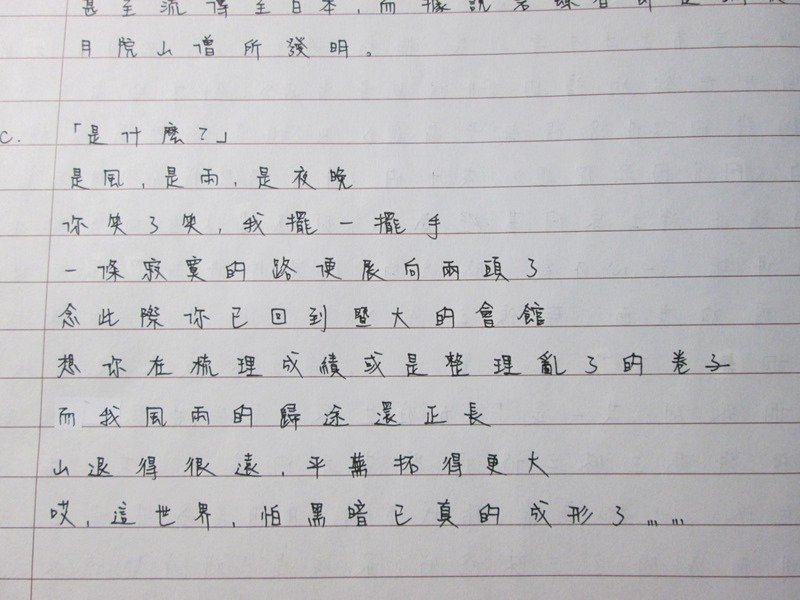 甚至流傳至日本，而據說
月院山僧所發明。
C. 「是什麼？」
是風，是雨，是夜晚
你笑了笑，我擺一擺手
一條寂寞的路便展向兩頭了
念此際你已回到暨大的會館
想你在梳理成績或是整理亂了的卷子
而我風雨的歸途還正長
山退得很遠，平蕪拓得更大
哎，這世界，怕黑暗已真的成形了……